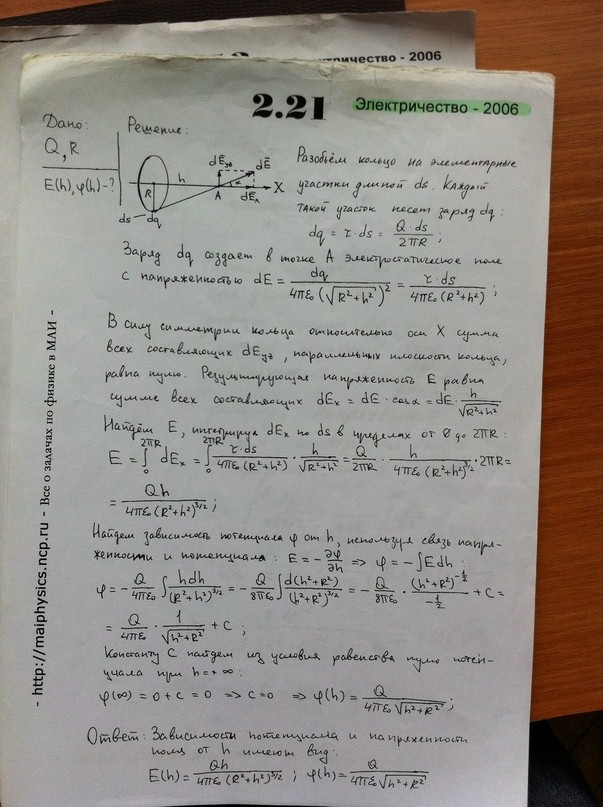 Электричество - 2006
2.21 Электричество - 2006
Дано:
Q, R
E(h), φ(h) - ?
Решение:
dE_yz dE̅
R h A α X
dE_x
ds dq
Разобьём кольцо на элементарные
участки длиной ds. Каждый
такой участок несет заряд dq:
dq = τ·ds = Q·ds / 2πR ;
Заряд dq создает в точке A электростатическое поле
с напряженностью dE = dq / 4πε₀(√(R²+h²))² = τ·ds / 4πε₀(R²+h²) ;
В силу симметрии кольца относительно оси X сумма
всех составляющих dE_yz, параллельных плоскости кольца,
равна нулю. Результирующая напряженность E равна
сумме всех составляющих dE_x = dE·cosα = dE· h / √(R²+h²)
Найдём E, интегрируя dE_x по ds в пределах от 0 до 2πR :
E = ∫₀^2πR dE_x = ∫₀^2πR τ·ds / 4πε₀(R²+h²) · h / √(R²+h²) = Q / 2πR · h / 4πε₀(R²+h²)^3/2 · 2πR =
= Qh / 4πε₀(R²+h²)^3/2 ;
Найдем зависимость потенциала φ от h, используя связь напря-
женности и потенциала : E = - ∂φ/∂h => φ = -∫Edh :
φ = - Q / 4πε₀ ∫ hdh / (R²+h²)^3/2 = - Q / 8πε₀ ∫ d(h²+R²) / (h²+R²)^3/2 = - Q / 8πε₀ · (h²+R²)^-1/2 / -1/2 + C =
= Q / 4πε₀ · 1 / √(h²+R²) + C ;
Константу C найдем из условия равенства нулю потен-
циала при h=+∞ :
φ(∞) = 0 + C = 0 => C=0 => φ(h) = Q / 4πε₀√(h²+R²) ;
Ответ: Зависимости потенциала и напряженности
поля от h имеют вид:
E(h) = Qh / 4πε₀(R²+h²)^3/2 ; φ(h) = Q / 4πε₀√(h²+R²)
- http://maiphysics.ncp.ru - Все о задачах по физике в МАИ -